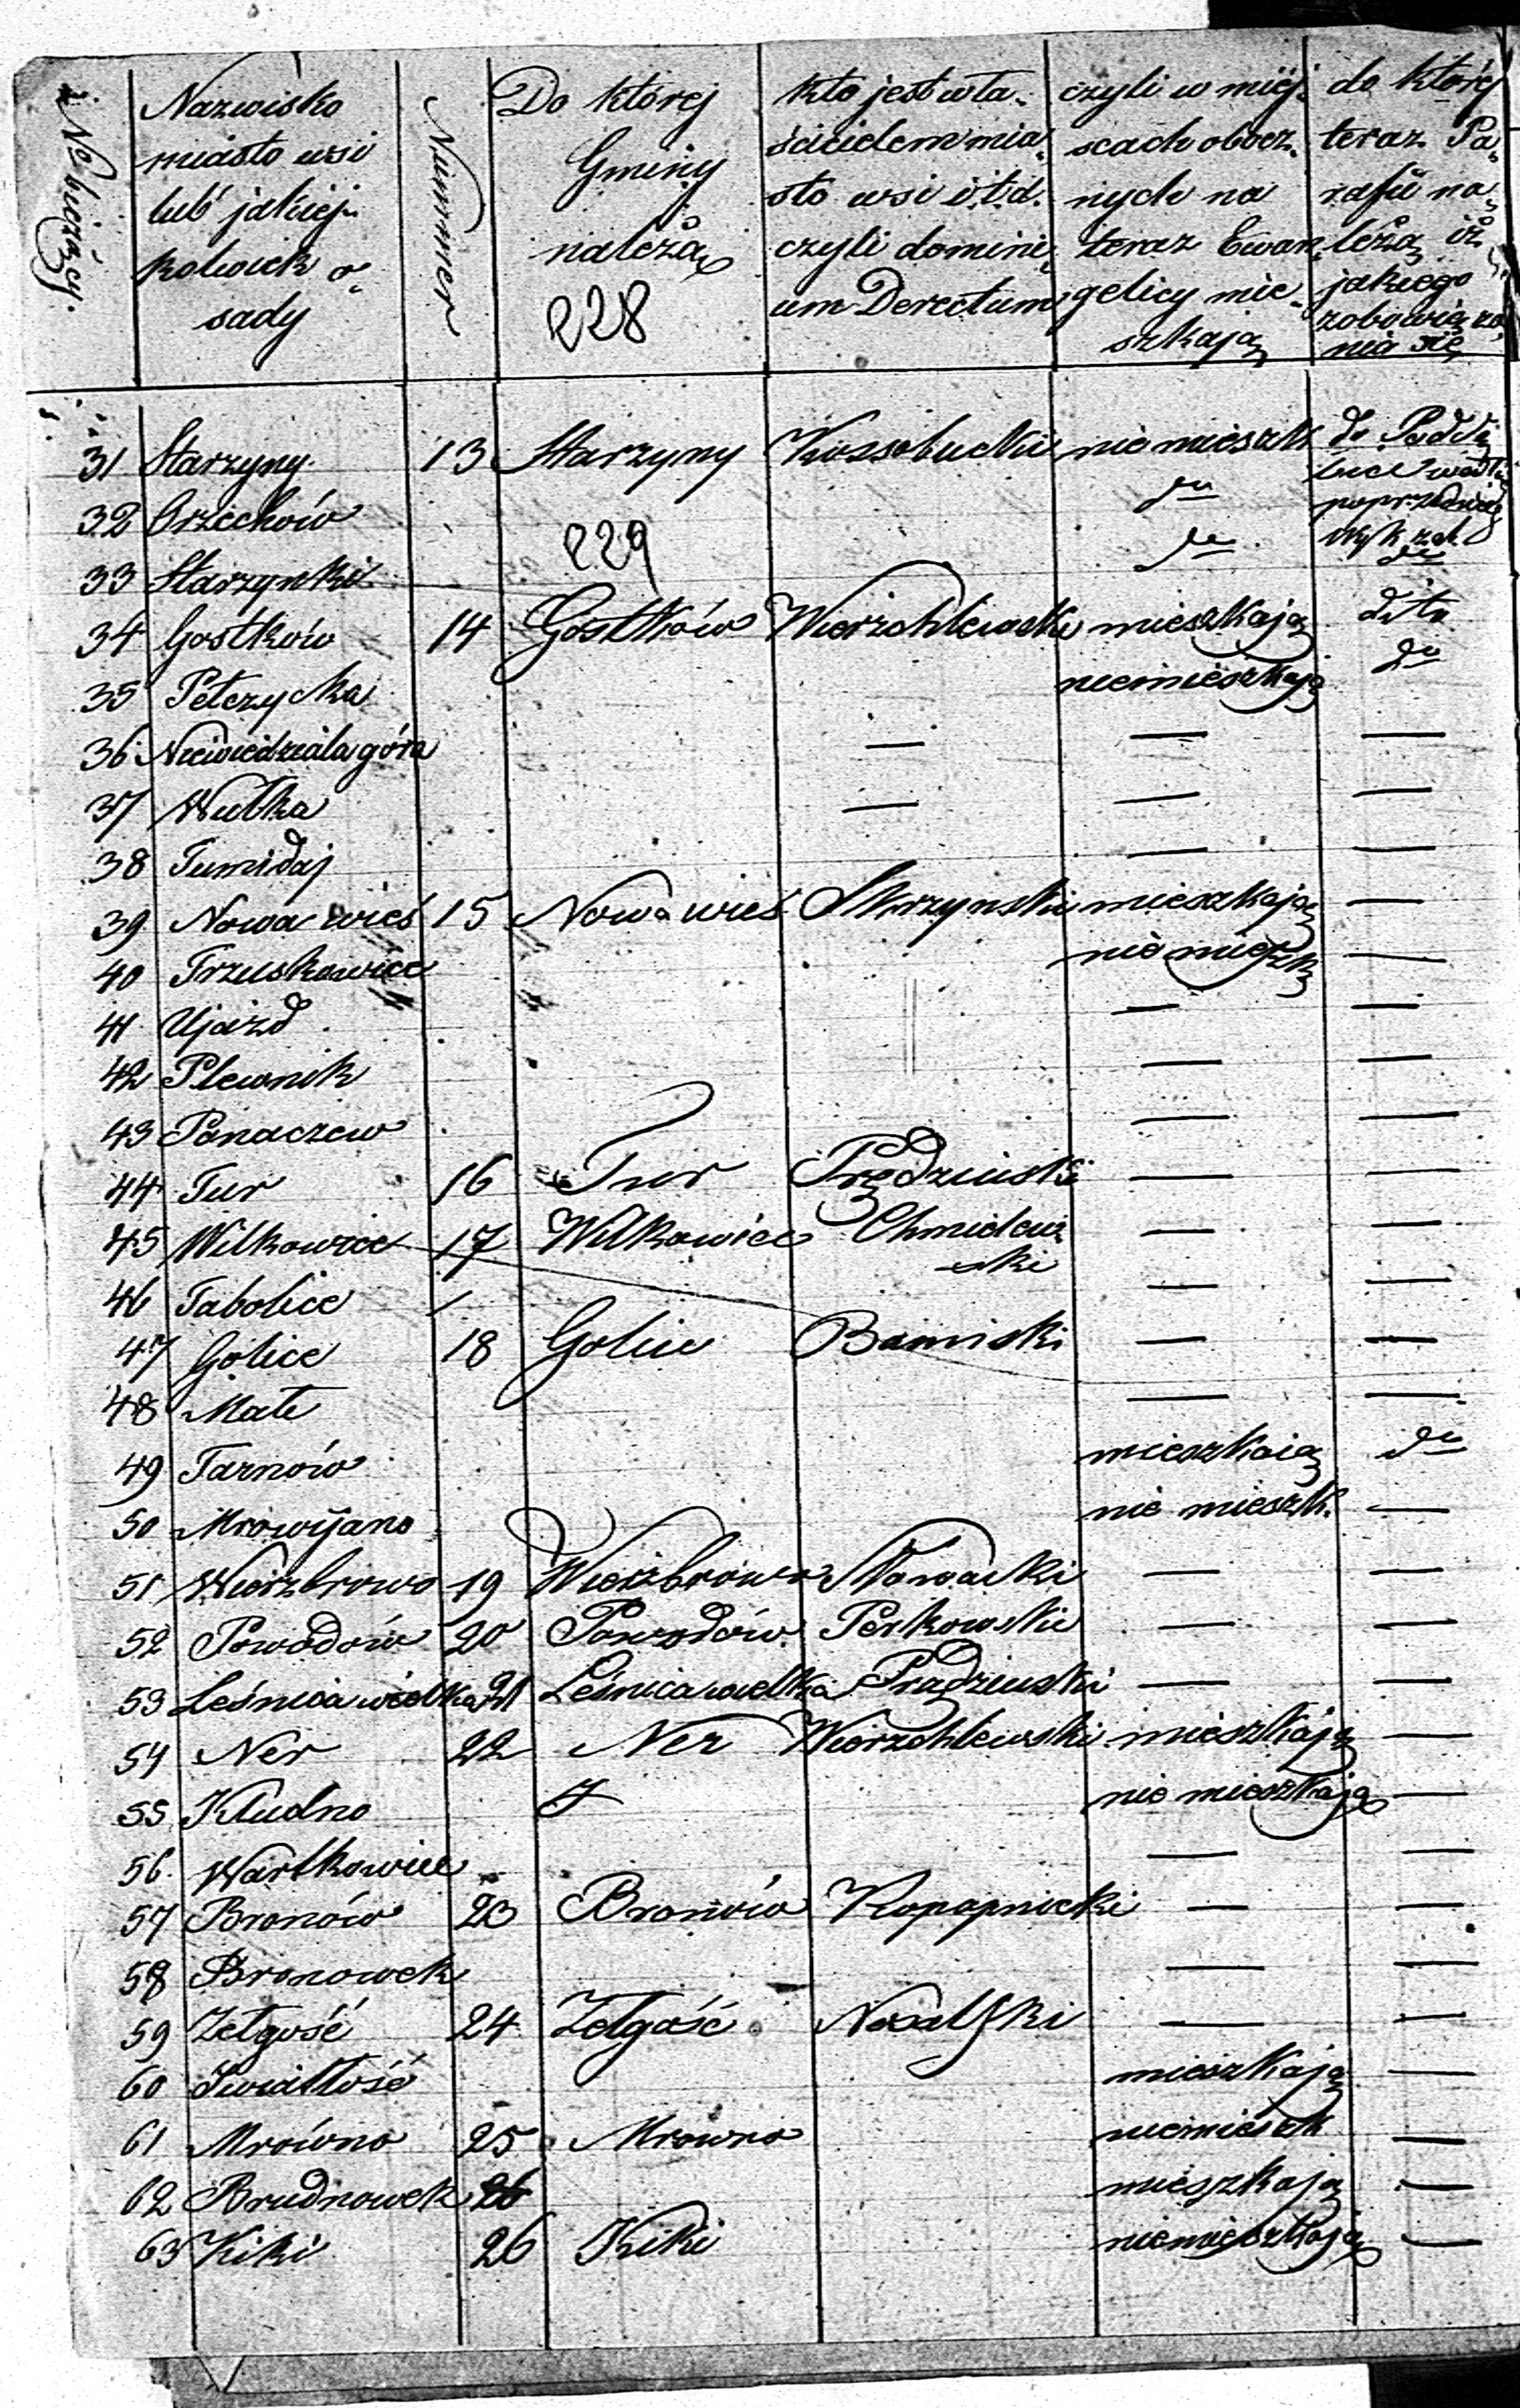 No bieżący.
Nazwisko
miasto wsi
lub jakiej-
kolwiek o-
sady
Nummer
Do której
Gminy
należą
228
kto jest wła-
ścicielem mia-
sto wsi i.t.d.
czyli domini-
um Derectum
czyli w miej-
scach obocz-
nych na
teraz Ewan-
gelicy mie-
szkają
do której
teraz Pa-
rafii na-
leżą iż
jakiego
zobowiąza-
nia się
31 Starzyny 13 Starzyny Kossobucki nie mieszk do Poddę
32 Orzechów do
229
33 Starzynki do do
34 Gostków 14 Gostków Wierzchlewski mieszkają dito
35 Pełczycka niemieszkają do
36 Niewiedziała góra — — —
37 Wulka — — —
38 Tumidaj — —
39 Nowa wieś 15 Nowa wieś Skrzynski mieszkają —
40 Truskawiec nie mieszk —
41 Ujazd — —
42 Plewnik — —
43 Panaczew — —
44 Tur 16 Tur Prądzinski — —
45 Wilkowice 17 Wilkowice Chmielew
ski — —
46 Tabolice — —
47 Golice 18 Golice — —
48 Małe — —
49 Tarnów mieszkaią do
50 Mrowijano nie mieszk. —
51 Wierzbrowo 19 Wierzbrowo Nowacki — —
52 Powodów 20 Powodów Perkowski — —
53 Leśnica wielka 21 Leśnica wielka Prądzinski — —
54 Ner 22 Ner Wierzchlewski mieszkają —
55 Kłudno nie mieszkają —
56. Wartkowice — —
57 Bronów 23 Bronów — —
58 Bronowek — —
59 Zełgość 24 Zełgość — —
60 Swiatłość mieszkają —
61 Mrówno 25 Mrowno niemieszk —
62 Brudnowek 26 mieszkają —
63 Kiki 26 Kiki niemieszkają —